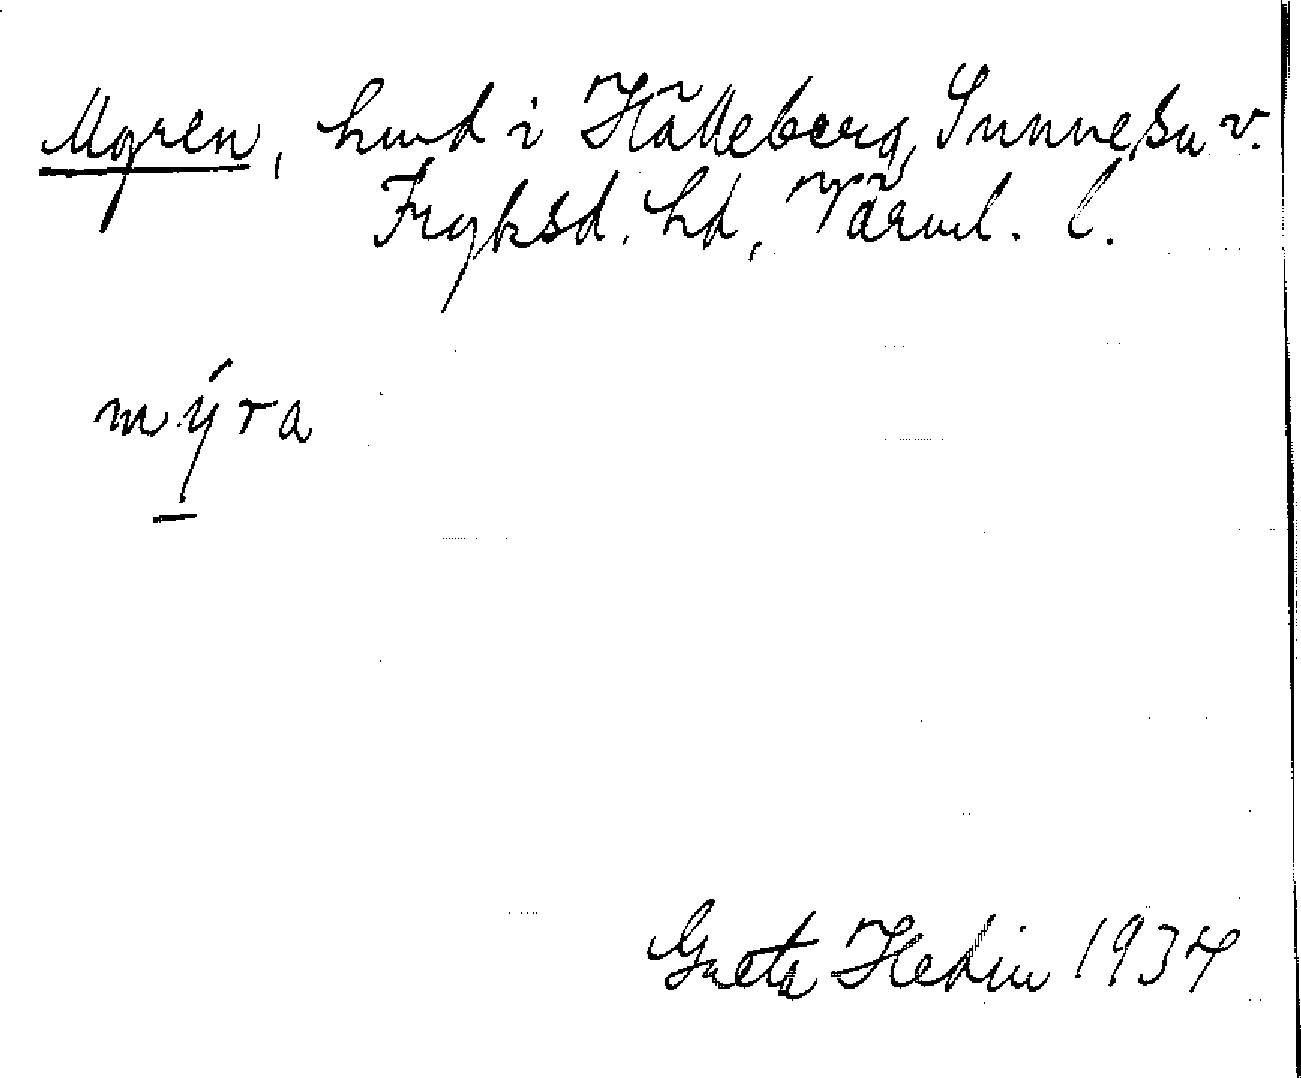 Myren, hmd i Hälleberg, Sunne sn v.
Fryksd. hd, Värml. l.
mýra
Greta Hedin 1934